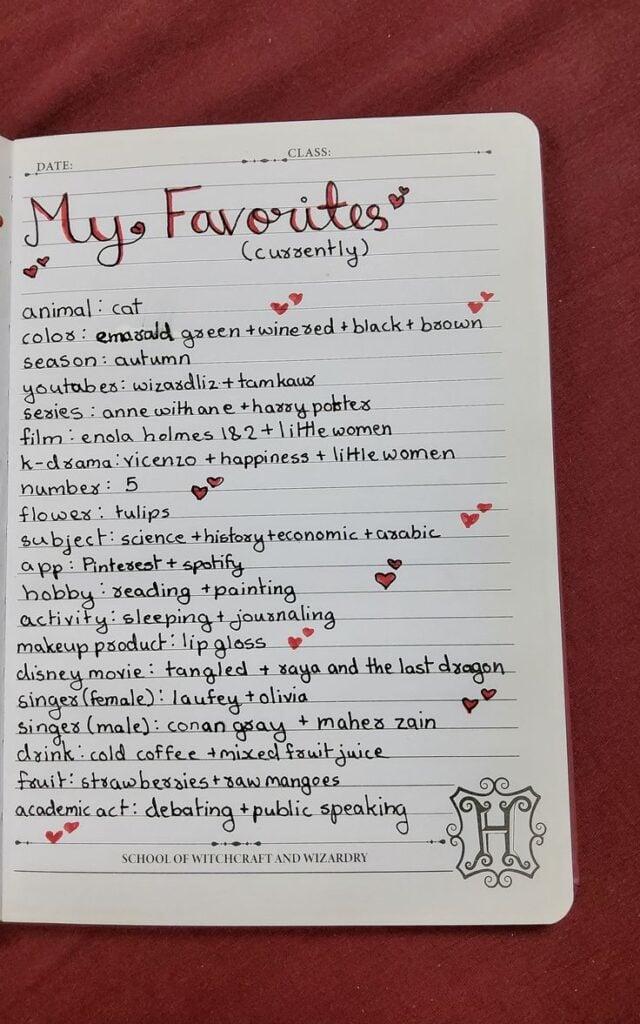 DATE: CLASS:
My Favorites
(currently)
animal: cat
color: emarald green + wine red + black + brown
season: autumn
youtuber: wizardliz + tamkaur
series: anne with an e + harry potter
film: enola holmes 1&2 + little women
k-drama: vicenzo + happiness + little women
number: 5
flower: tulips
subject: science + history + economic + arabic
app: Pinterest + spotify
hobby: reading + painting
activity: sleeping + journaling
makeup product: lip gloss
disney movie: tangled + raya and the last dragon
singer (female): laufey + olivia
singer (male): conan gray + maher zain
drink: cold coffee + mixed fruit juice
fruit: strawberries + raw mangoes
academic act: debating + public speaking
H
SCHOOL OF WITCHCRAFT AND WIZARDRY